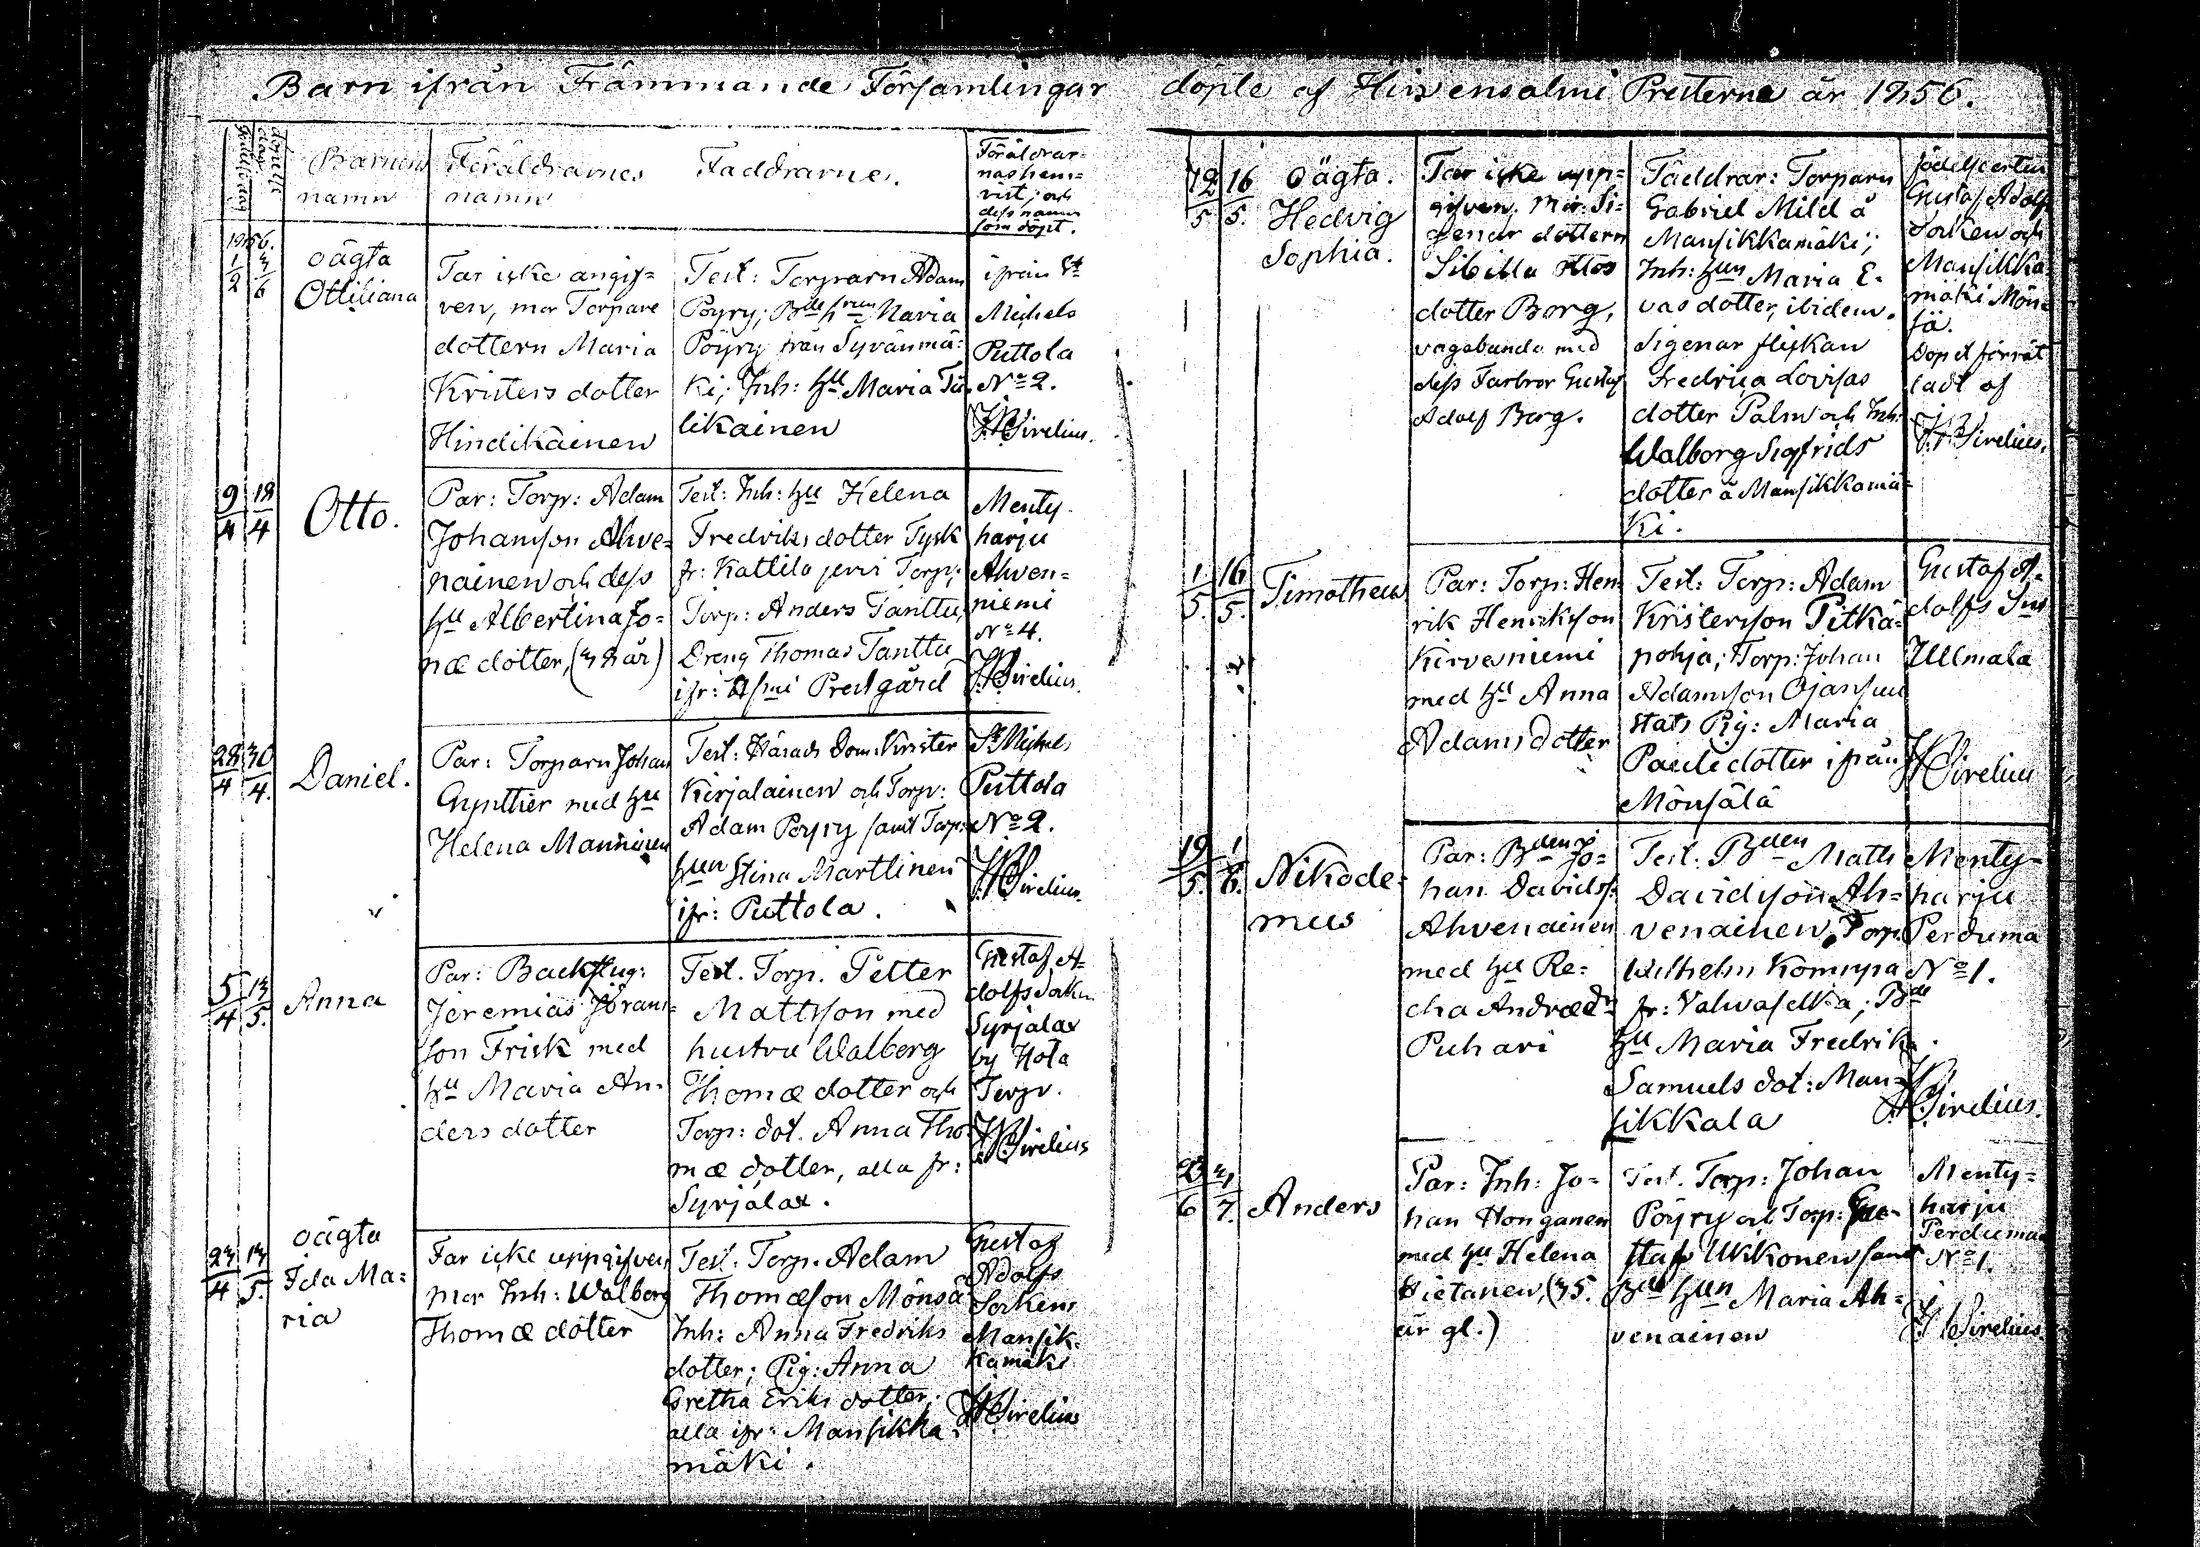 Barn ifrån Främmande Församlingar döpte af Hirvensalmi Presterna år 1856.
Barnens namn
Föräldrarnes namn
Faddrarne.
Föräldrar-
nas hem-
vist; och
dess namn
som döpt.
1856.
1/2
3/6
oägta
Ottiliana
Far icke angif-
ven, mor Torpare
dottern Maria
Kristers dotter
Hindikäinen
Test: Torparn Adam
Pöyry; Bde hrun Maria
Pöyry från Syvänmä-
ki; Inh: hu Maria Tii-
likainen
ifrån St
Michels
Puttola
No 2.
Sirelius.
9/4
18/4
Otto.
Par: Torp: Adam
Johansson Ahve-
nainen och dess
hu Albertina Jo-
næ dotter, (32 år)
Test: Inh: hu Helena
Fredriks dotter Tysk
fr: Kattila jervi Torp;
Torp: Anders Tanttu,
Dreng Thomas Tanttu
ifr: Hmi Prestgård
Menty-
harju
Ahven-
niemi
No 4.
Sirelius.
28/4
30/4.
Daniel.
Par: Torparn Johan
Gynther med hu
Helena Manninen
Test: Härads Dom: Krister
Kirjalainen och Torp:
Adam Pöyry samt Torp:
hun Stina Marttinen
ifr: Puttola.
St Michels
Puttola
No 2.
Sirelius.
5/4
13/5.
Anna
Par: Backstug:
Jeremias Jöran-
son Frisk med
hu Maria An-
ders dotter
Test. Torp. Petter
Mattsson med
hustru Walborg
Thomæ dotter och
Torp: dot. Anna Tho-
mæ dotter, alla fr:
Syrjälax.
Gustaf A-
dolfs Sokn
Syrjälax
by Hota
Torp.
Sirelius
23/4
13/5.
oägta
Ida Ma-
ria
Far icke uppgifven,
mor Inh: Walborg
Thomæ dotter
Test. Torp. Adam
Thomæson Mönsä
Inh: Anna Fredriks
dotter; Pig: Anna
Gretha Eriks dotter,
alla ifr: Mansikka-
mäki.
Gustaf
Adolfs
Sokens
Mansik-
kamäki
Sirelius
12/5
16/5.
oägta.
Hedvig
Sophia.
Far icke upp-
gifven. Mor: Si-
genar dottern
Sibilla Ottos
dotter Borg,
vagabunde med
dess Farbror Gustaf
Adolf Borg.
Faddrar: Torparn
Gabriel Mild å
Mansikkamäki;
Inh: hun Maria E-
vas dotter, ibidem.
Sigenar flickan
Fredrica Lovisas
dotter Palm och Inh:
Walborg Sigfrids
dotter å Mansikkamä-
ki.
födelseorten
Gustaf Adolfs
Soken och
Mansikka
mäki Mön
sä.
Dopet förrät
tadt af
Sirelius.
1/5.
16/5.
Timotheus
Par: Torp: Hen-
rik Henriksson
Kirvesniemi
med hu Anna
Adams dotter
Test: Torp: Adam
Kristersson Pitkä-
pohja; Torp: Johan
Adamsson Ojansuu
stats Pig: Maria
Pauli dotter ifrån
Mönsälä
Gustaf A-
dolfs Sn
Ullmala
Sirelius
19/5.
1/6.
Nikode-
mus
Par: Bden Jo-
han Davidss:
Ahvenainen
med hu Re-
cha Andræ dr
Puhari
Test. Bden Matts
Davidsson Ah-
venainen, Torp.
Wilhelm Komppa
fr: Vahvaselkä; Bde
hu Maria Fredrika
Samuels dot: Man-
sikkala
Menty-
harju
Perduma
No 1.
Sirelius.
23/6
3/7.
Anders
Par: Inh: Jo-
han Honganen
med hu Helena
Hietanen, (35.
år gl.)
Test. Torp: Johan
Pöyry och Torp: Gu-
staf Ukkonen samt
Bde hun Maria Ah-
venainen
Menty-
harju
Perduma
No 1.
Sirelius